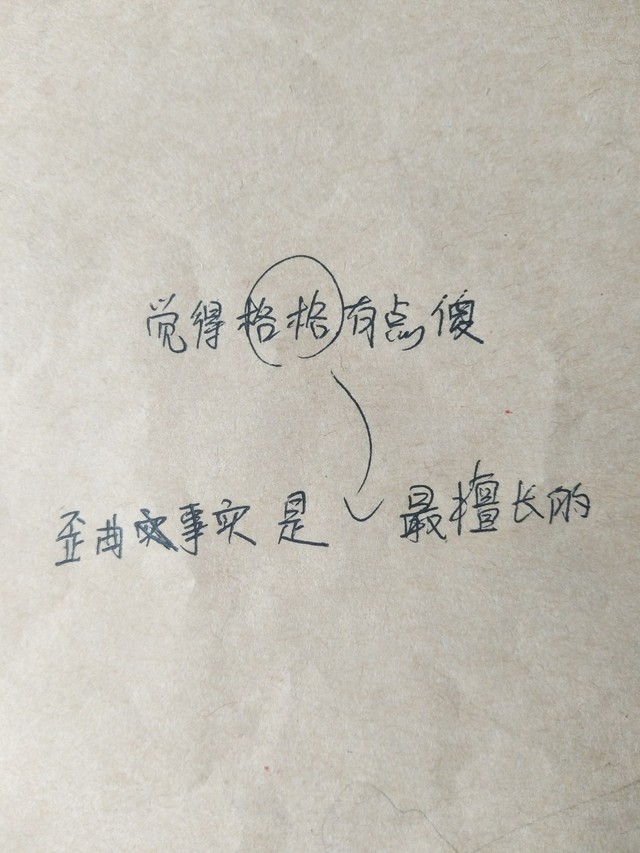 觉得格格有点傻
歪曲事实是最擅长的